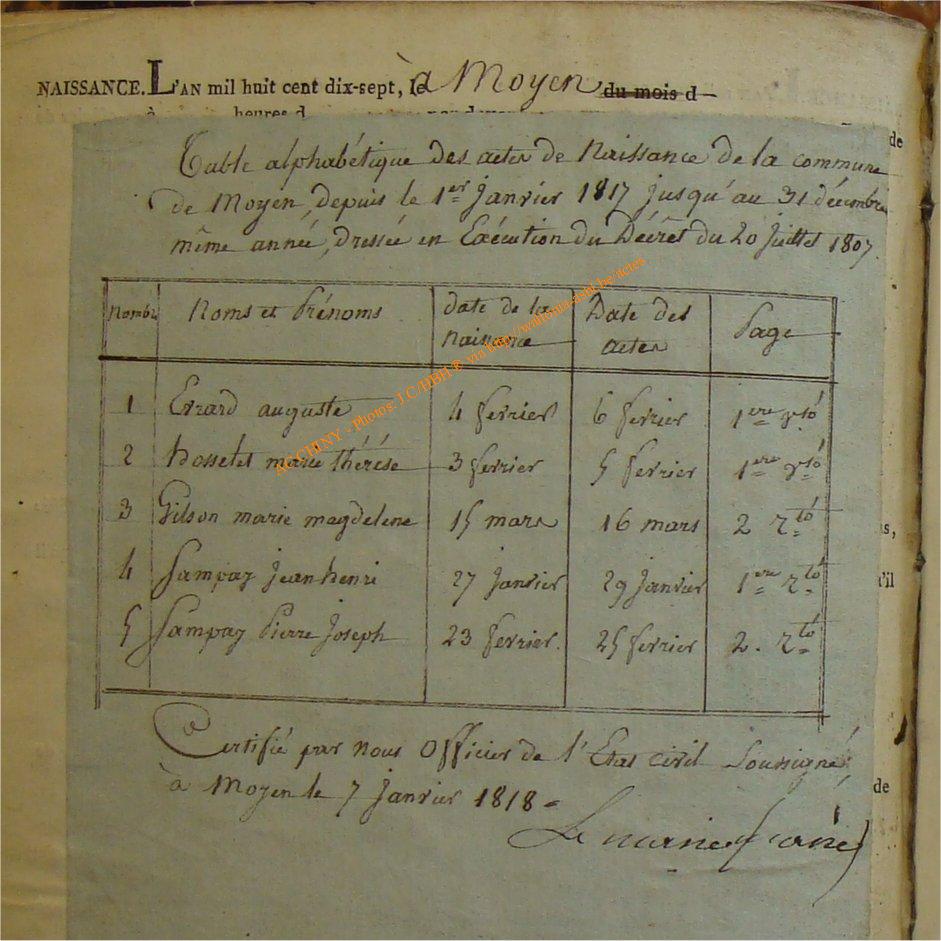 NAISSANCE. L'AN mil huit cent dix-sept, le à Moyen du mois d
à heures d par devant
de
Table alphabétique des actes de Naissance de la commune
de Moyen, depuis le 1er Janvier 1817 jusqu'au 31 décembre
même année, dressée en Exécution du Décret du 20 Juillet 1807.
Nombre Noms et Prénoms date de la Naissance Date des actes Page
1 Errard auguste 4 fevrier 6 fevrier 1ere vto
2 hosselet marie thérése 3 fevrier 5 fevrier 1ere vto
3 Gilson marie magdelene 15 mars 16 mars 2 rto
4 Sampay jean henri 27 janvier 29 janvier 1ere rto
5 Sampay Pierre Joseph 23 fevrier. 25 fevrier 2. rto
Certifié par nous Officier de l'Etat civil Soussigné
à Moyen le 7 janvier 1818 -
s,
'il
de
Photos: J.C/HBH ® via http://wallonia-asbl.be/actes